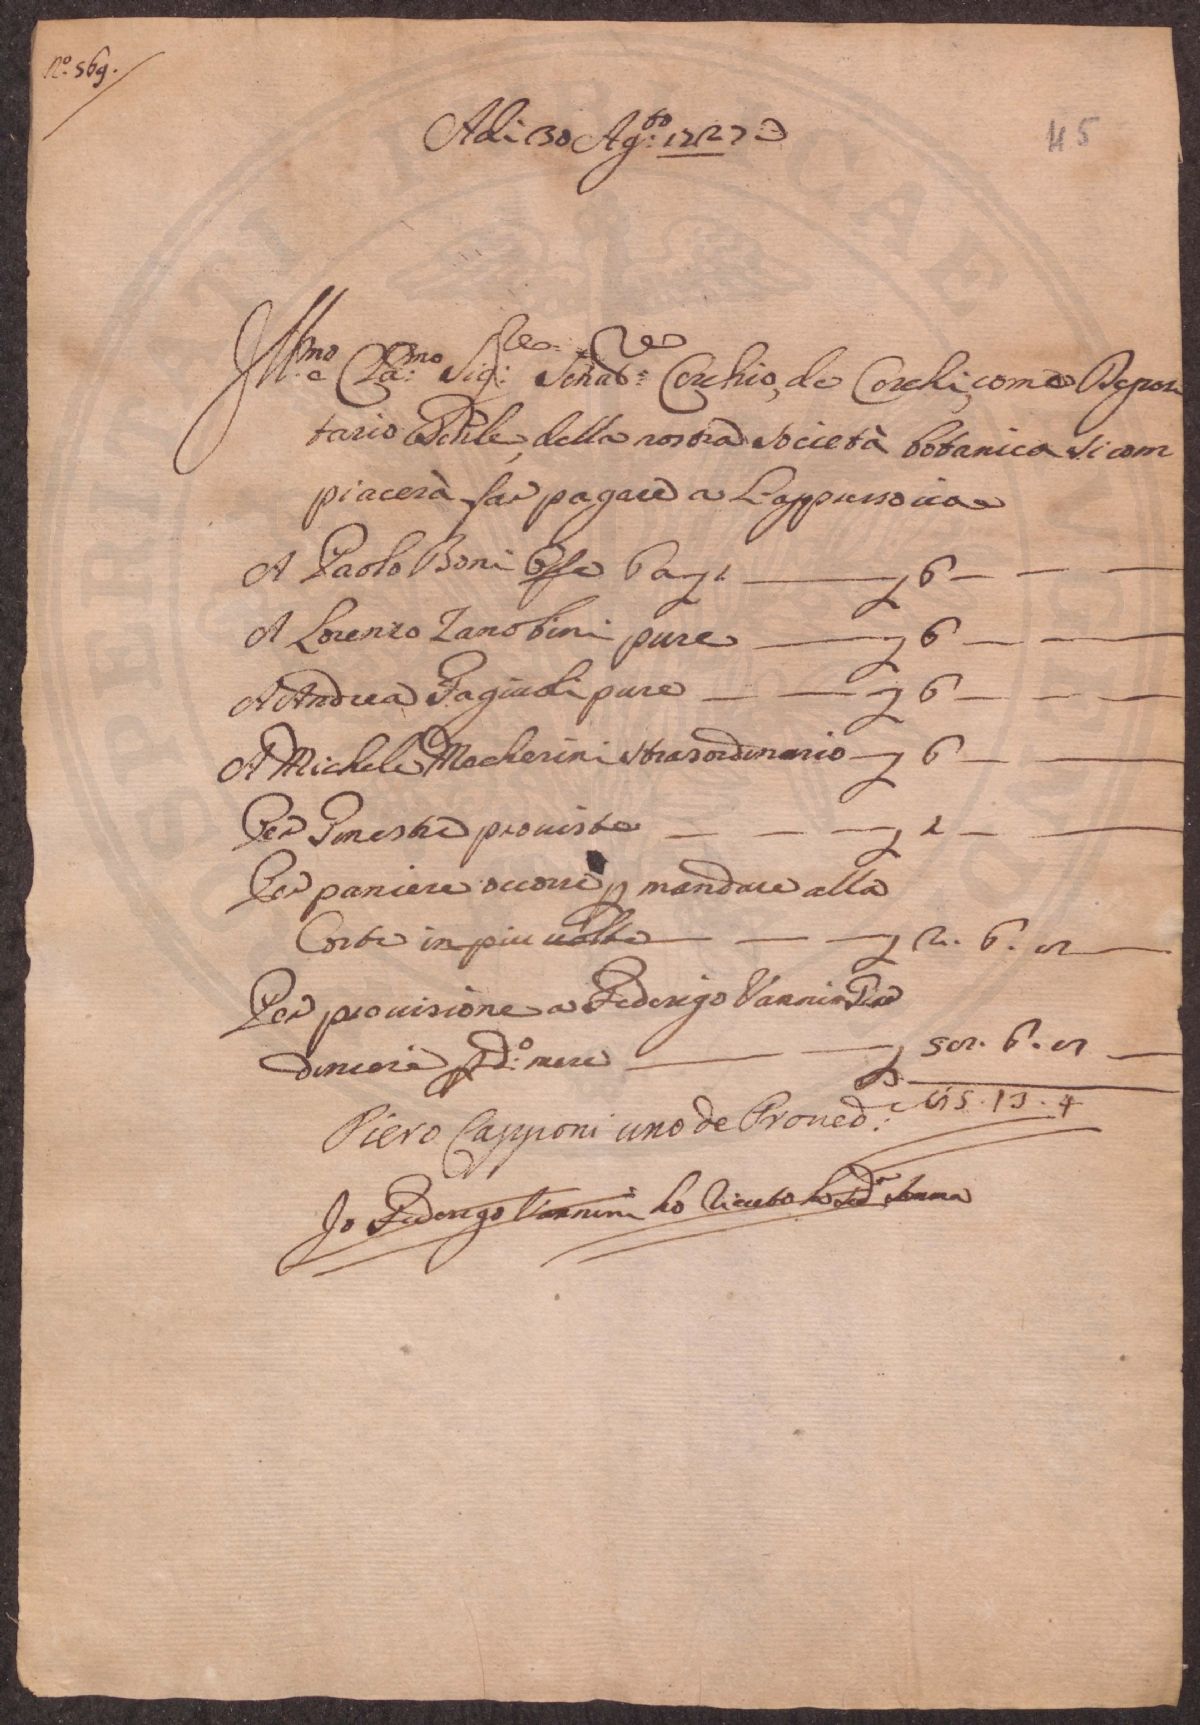 N.º 569.
Adi 30 Ag.to 1727
45
Ill.mo e Cla.mo Sig.re Senat.re Cerchio, de Cerchi, come Deposi
tario della nostra Società botanica si com
piacerà far pagare a L'appresso cioe
A Paolo Boni 6 6
A Lorenzo Zanobini pure 6
A Andrea Fagiuoli pure 6
A Michele Macherini strasordinario 6
Per Ginestre proviste 2
Per paniere occorse p mandare alla
Corte in piu volte 2. 6. 8
Per provisione a Federigo Vannini
d.º mese 6. 8
13. 4
Piero Capponi uno de Proved:
Io Federigo Vannini ho riceuto la sud.a somma